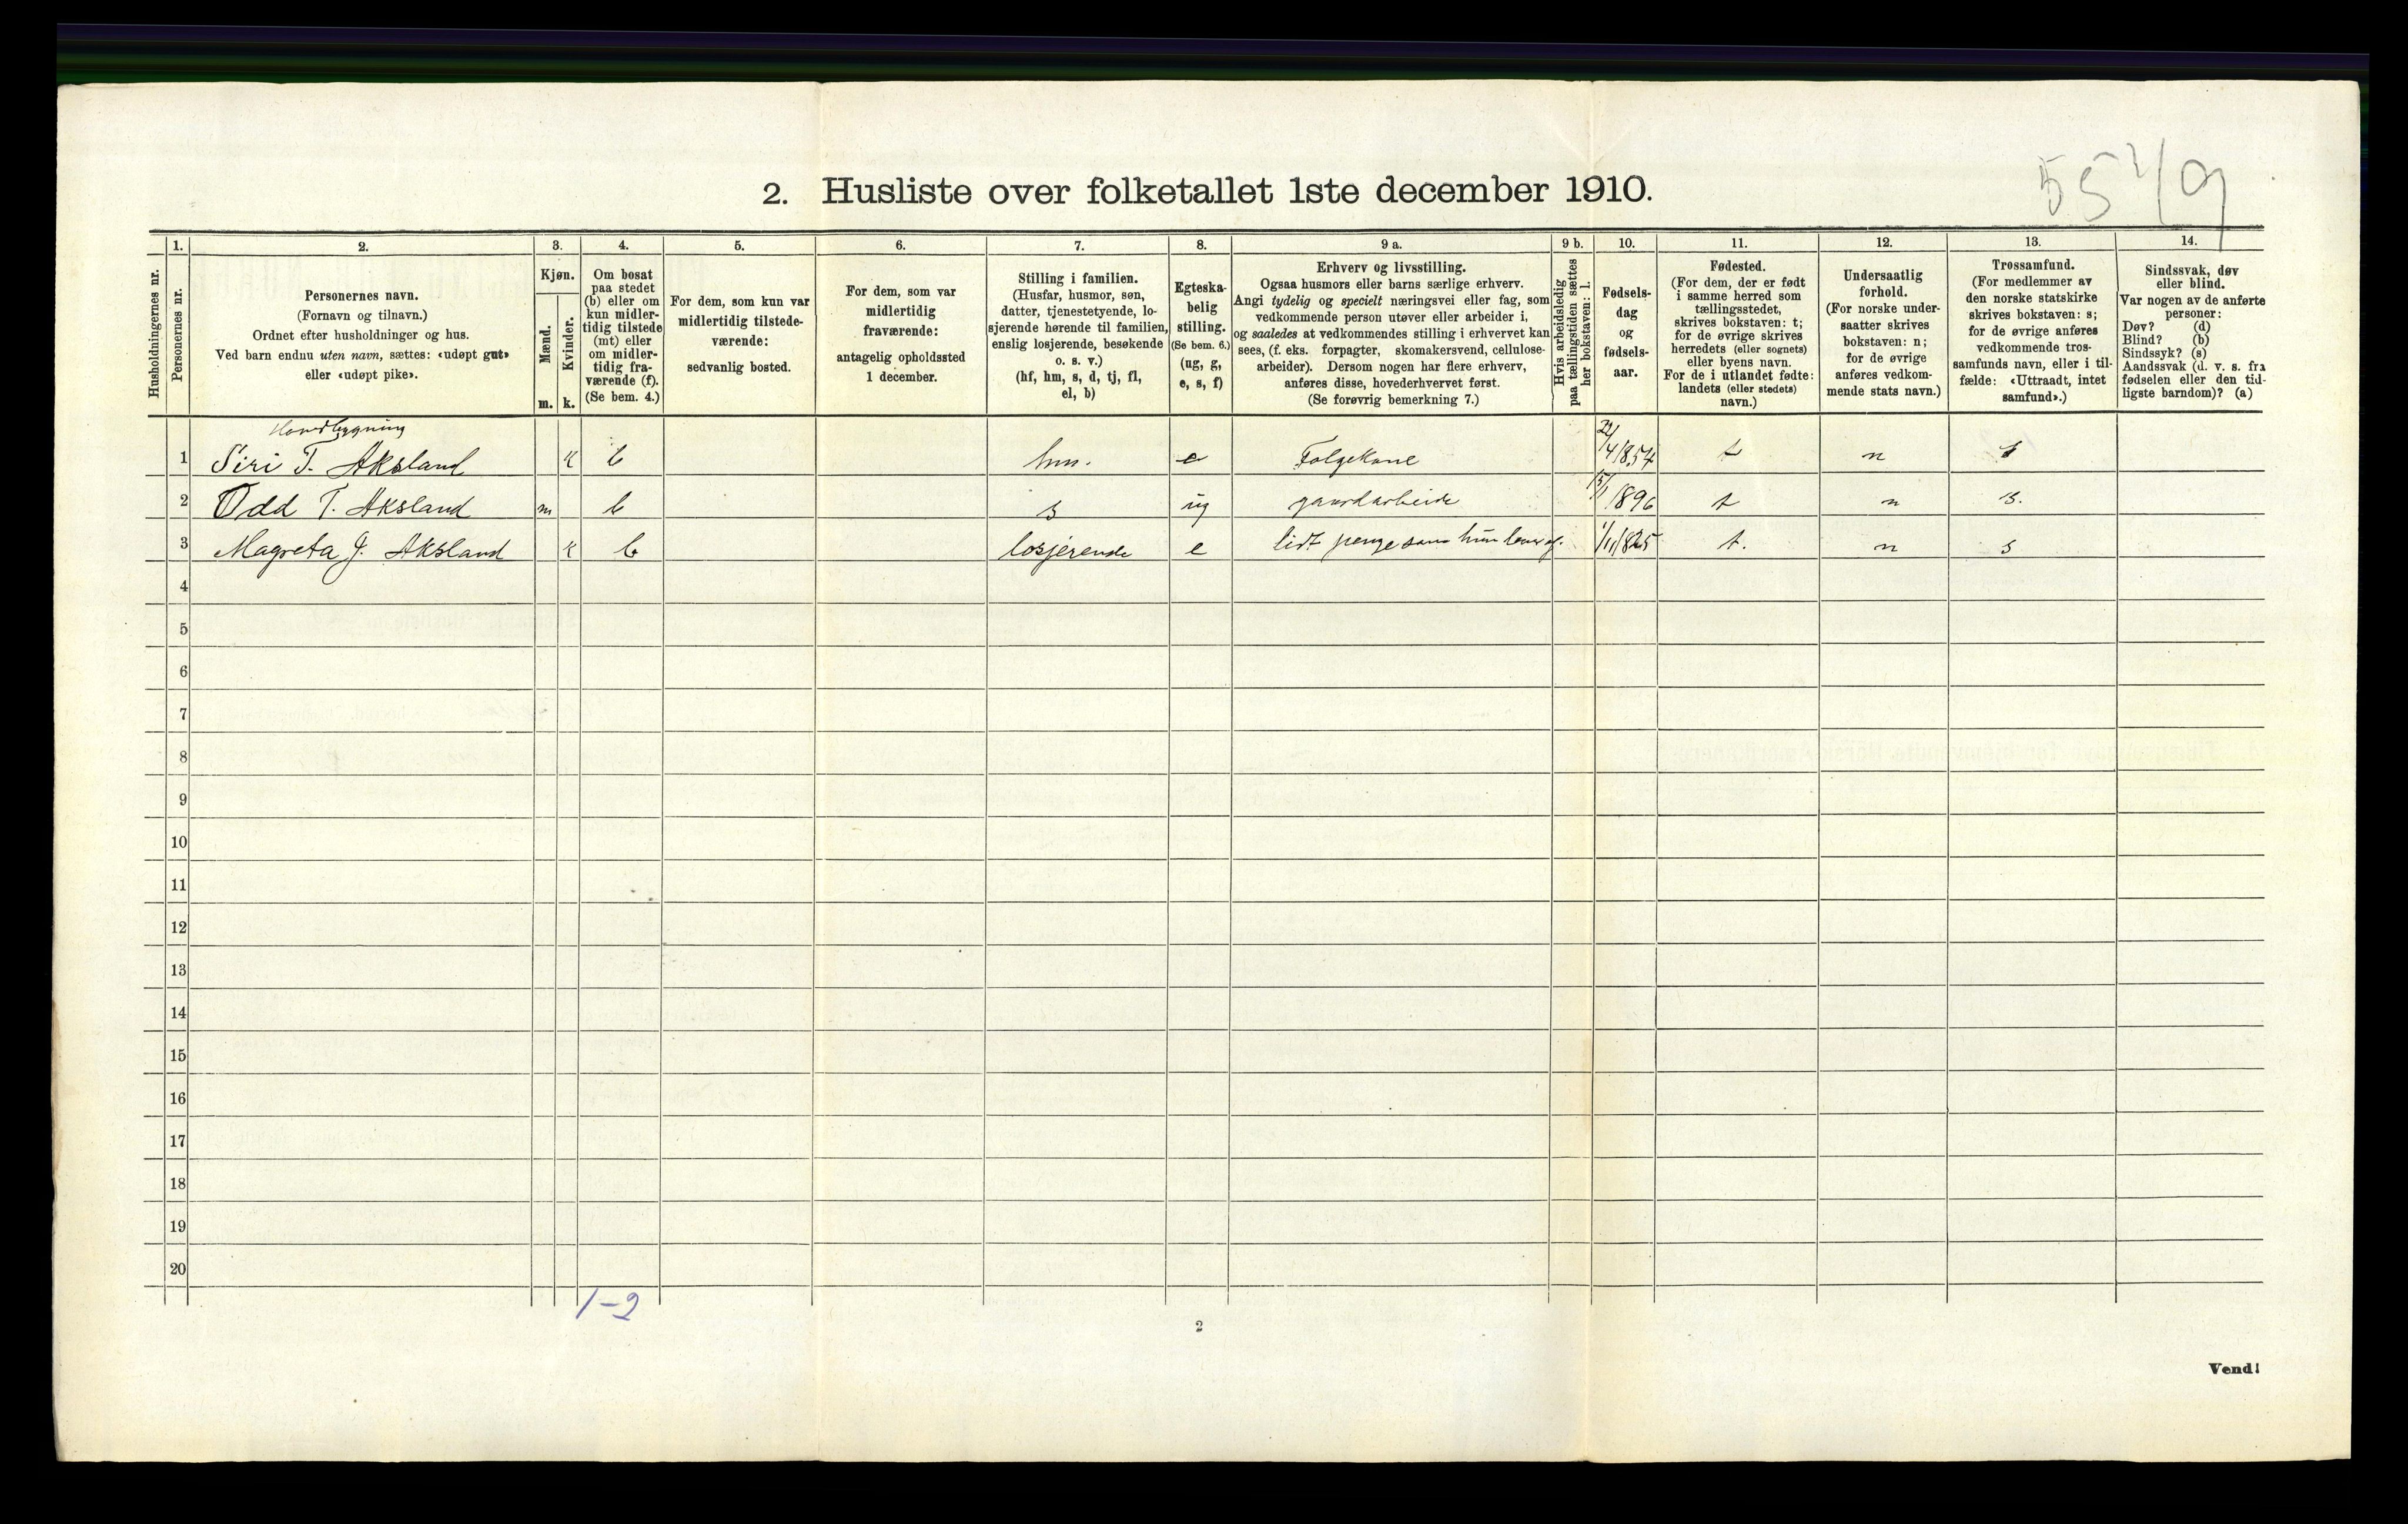 55 2/9
2. Husliste over folketallet 1ste december 1910.
Husholdningernes nr.
1.
Personernes nr.
2.
Personernes navn.
(Fornavn og tilnavn.)
Ordnet efter husholdninger og hus.
Ved barn endnu uten navn, sættes: «udøpt gut»
eller «udøpt pike».
3.
Kjøn.
Mænd.
Kvinder.
m. k.
4.
Om bosat
paa stedet
(b) eller om
kun midler-
tidig tilstede
(mt) eller
om midler-
tidig fra-
værende (f).
(Se bem. 4.)
5.
For dem, som kun var
midlertidig tilstede-
værende:
sedvanlig bosted.
6.
For dem, som var
midlertidig
fraværende:
antagelig opholdssted
1 december.
7.
Stilling i familien.
(Husfar, husmor, søn,
datter, tjenestetyende, lo-
sjerende hørende til familien,
enslig losjerende, besøkende
o. s. v.)
(hf, hm, s, d, tj, fl,
el, b)
8.
Egteska-
belig
stilling.
(Se bem. 6.)
(ug, g,
e, s, f)
9 a.
Erhverv og livsstilling.
Ogsaa husmors eller barns særlige erhverv.
Angi tydelig og specielt næringsvei eller fag, som
vedkommende person utøver eller arbeider i,
og saaledes at vedkommendes stilling i erhvervet kan
sees, (f. eks. forpagter, skomakersvend, cellulose-
arbeider). Dersom nogen har flere erhverv,
anføres disse, hovederhvervet først.
(Se forøvrig bemerkning 7.)
9 b.
Hvis arbeidsledig
paa tællingstiden sættes
her bokstaven: l.
10.
Fødsels-
dag
og
fødsels-
aar.
11.
Fødested.
(For dem, der er født
i samme herred som
tællingsstedet,
skrives bokstaven: t;
for de øvrige skrives
herredets (eller sognets)
eller byens navn.
For de i utlandet fødte:
landets (eller stedets)
navn.)
12.
Undersaatlig
forhold.
(For norske under-
saatter skrives
bokstaven: n;
for de øvrige
anføres vedkom-
mende stats navn.)
13.
Trossamfund.
(For medlemmer av
den norske statskirke
skrives bokstaven: s;
for de øvrige anføres
vedkommende tros-
samfunds navn, eller i til-
fælde: «Uttraadt, intet
samfund».)
14.
Sindssvak, døv
eller blind.
Var nogen av de anførte
personer:
Døv? (d)
Blind? (b)
Sindssyk? (s)
Aandssvak (d. v. s. fra
fødselen eller den tid-
ligste barndom)? (a)
1 Siri T. Aksland k b hm. e Folgekone /4 1854 t n s
2 Odd T. Aksland m b s ug gaardarbeide 15/1 1896 t n s.
3 Magreta J. Aksland k b losjerende e lidt penge som hun lever af. 1/11 1825 t. n s
4
5
6
7
8
9
10
11
12
13
14
15
16
17
18
19
20
1-2
2
Vend!